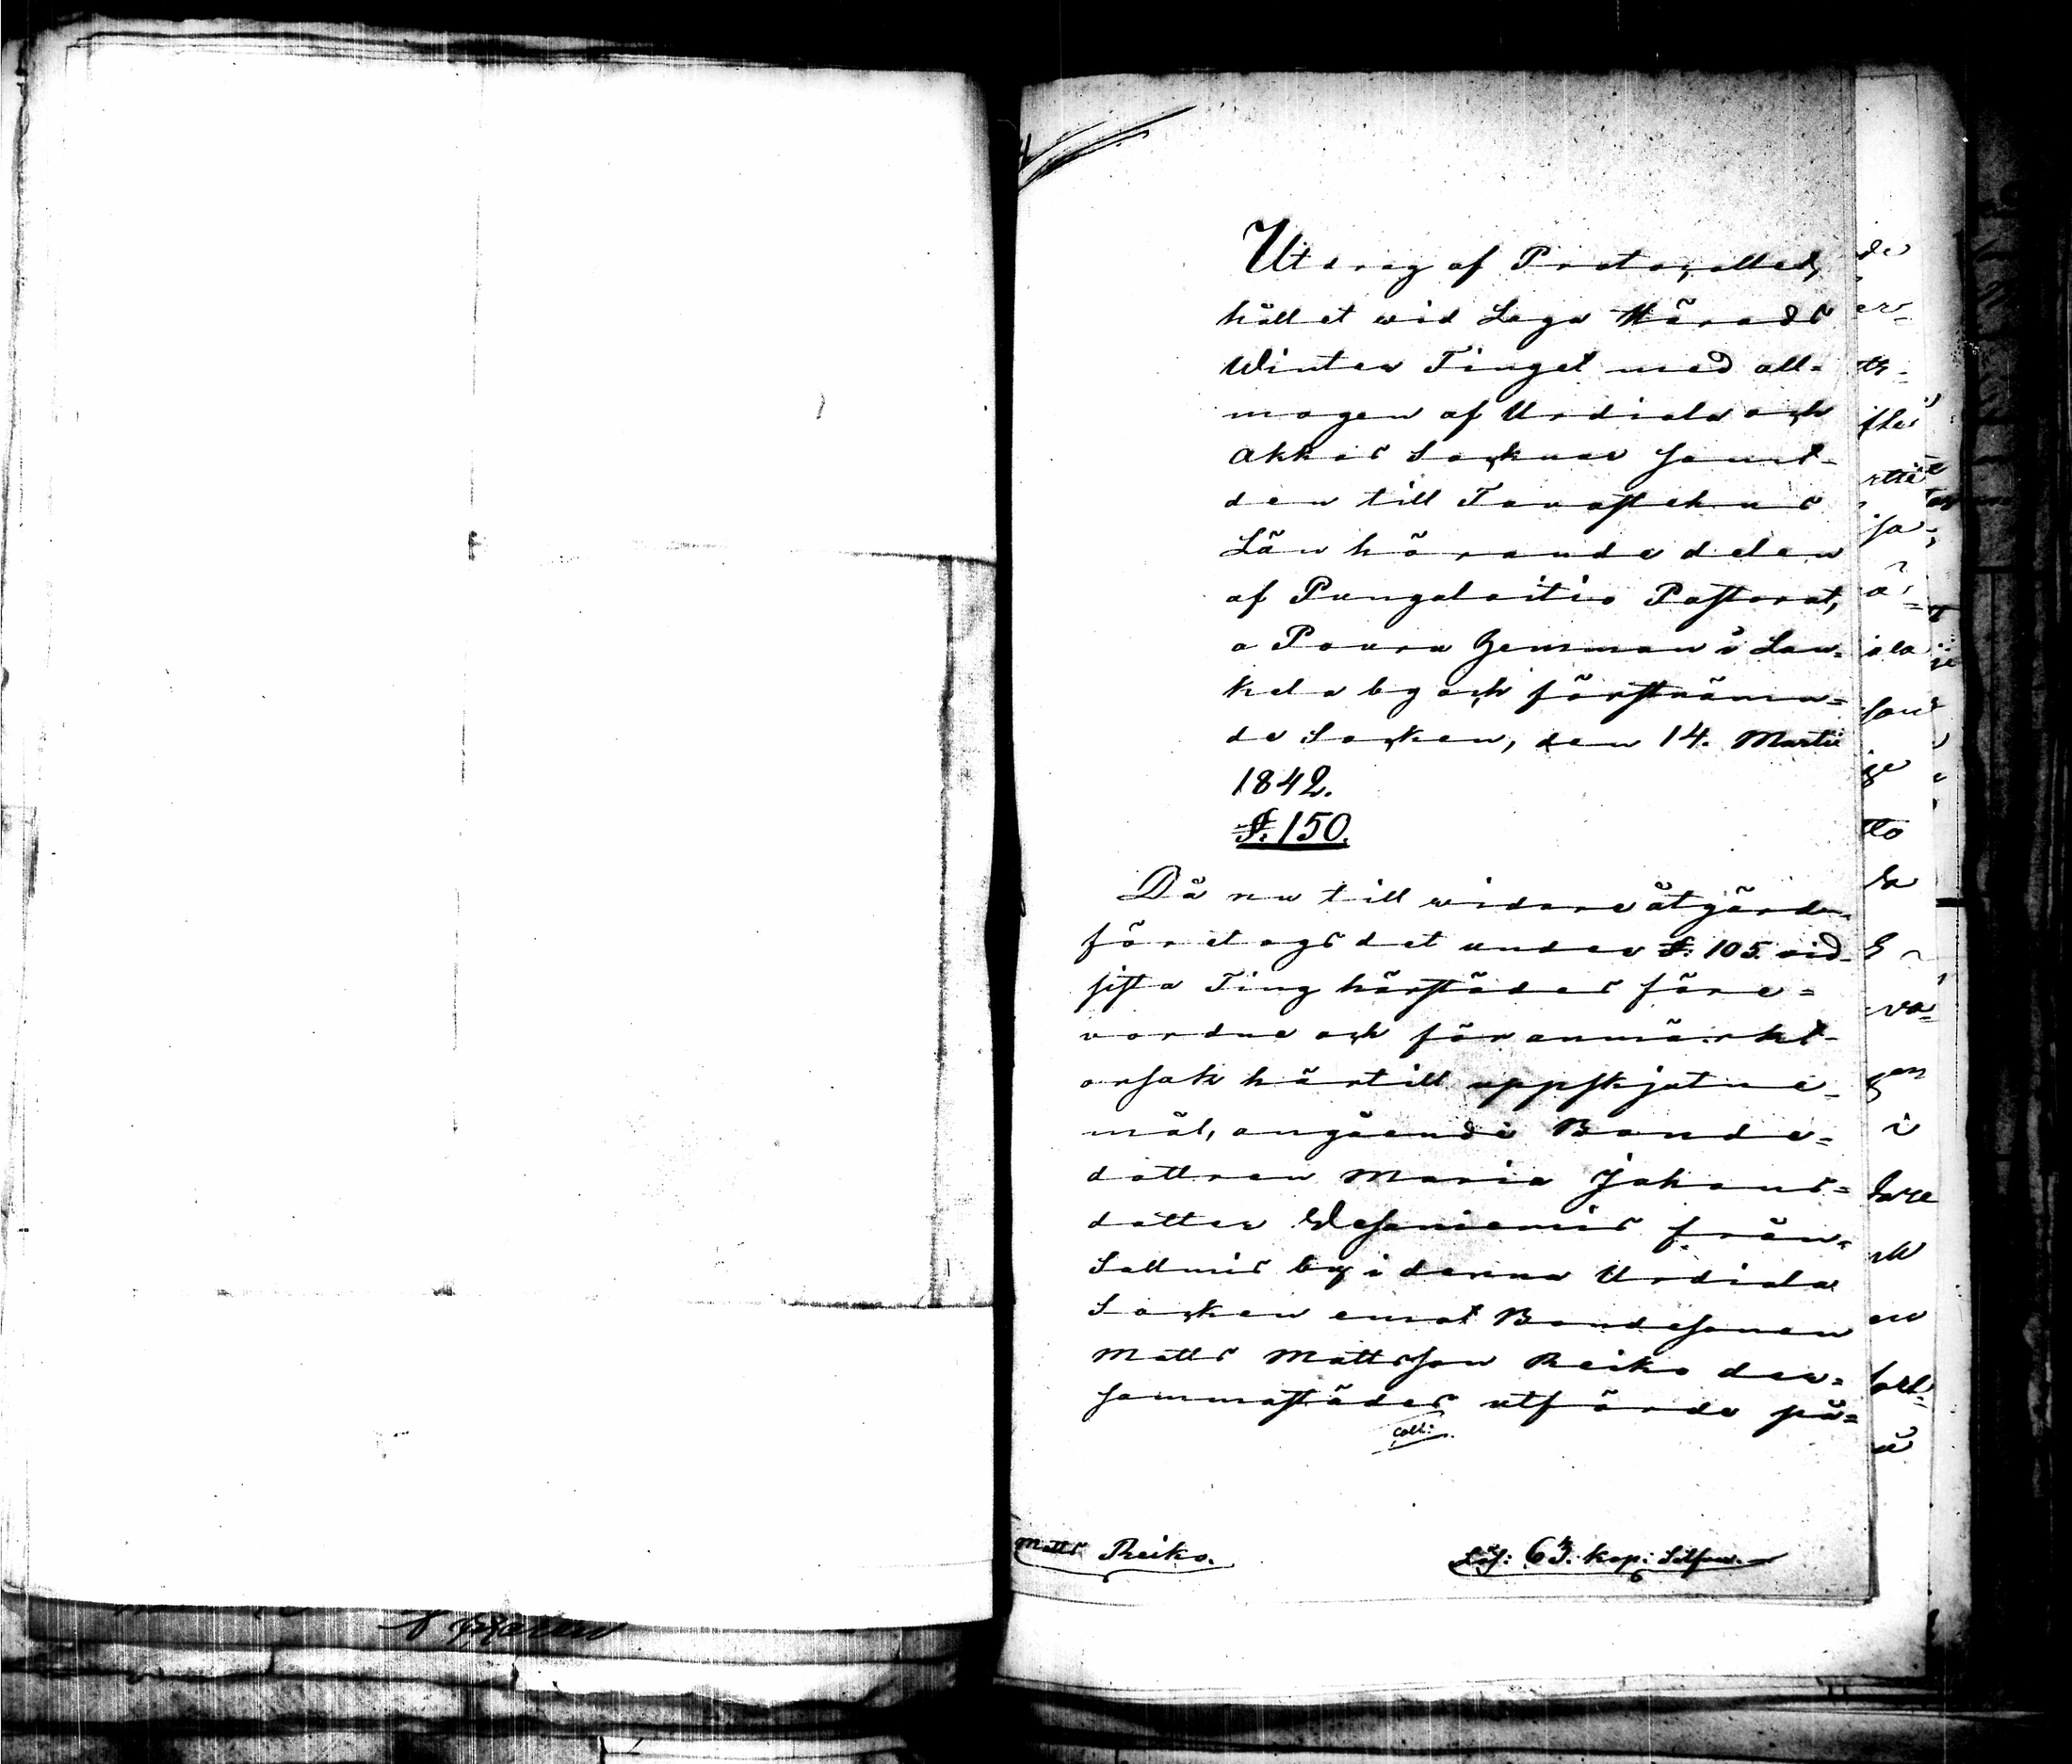 Utdrag af Protocollet,
hållet wid Laga Härads
Winter Tinget med all=
mogen af Urdiala och
Akkas Socknar samt
den till Tavastehus
Län hörande delen
af Pungalaitio Pastorat,
a Paura Hemman i Lau=
kela by och förstnämn=
de Socken, den 14. Martii
1842.
§. 150.
Då nu till widare åtgärd
företogs det under §. 105. vid
sista Ting härstädes före=
vordne och för anmärkt
orsak härtill uppskjutne
mål, angående Bonde=
dottren Maria Johans=
dotter Wesaniemis från
Salmis by i denna Urdiala
Socken emot Bondesonen
Matts Mattsson Reiko der=
sammastädes utförde på=
Coll:
Matts Reiko.
Lös: 63. kop: Silfver.